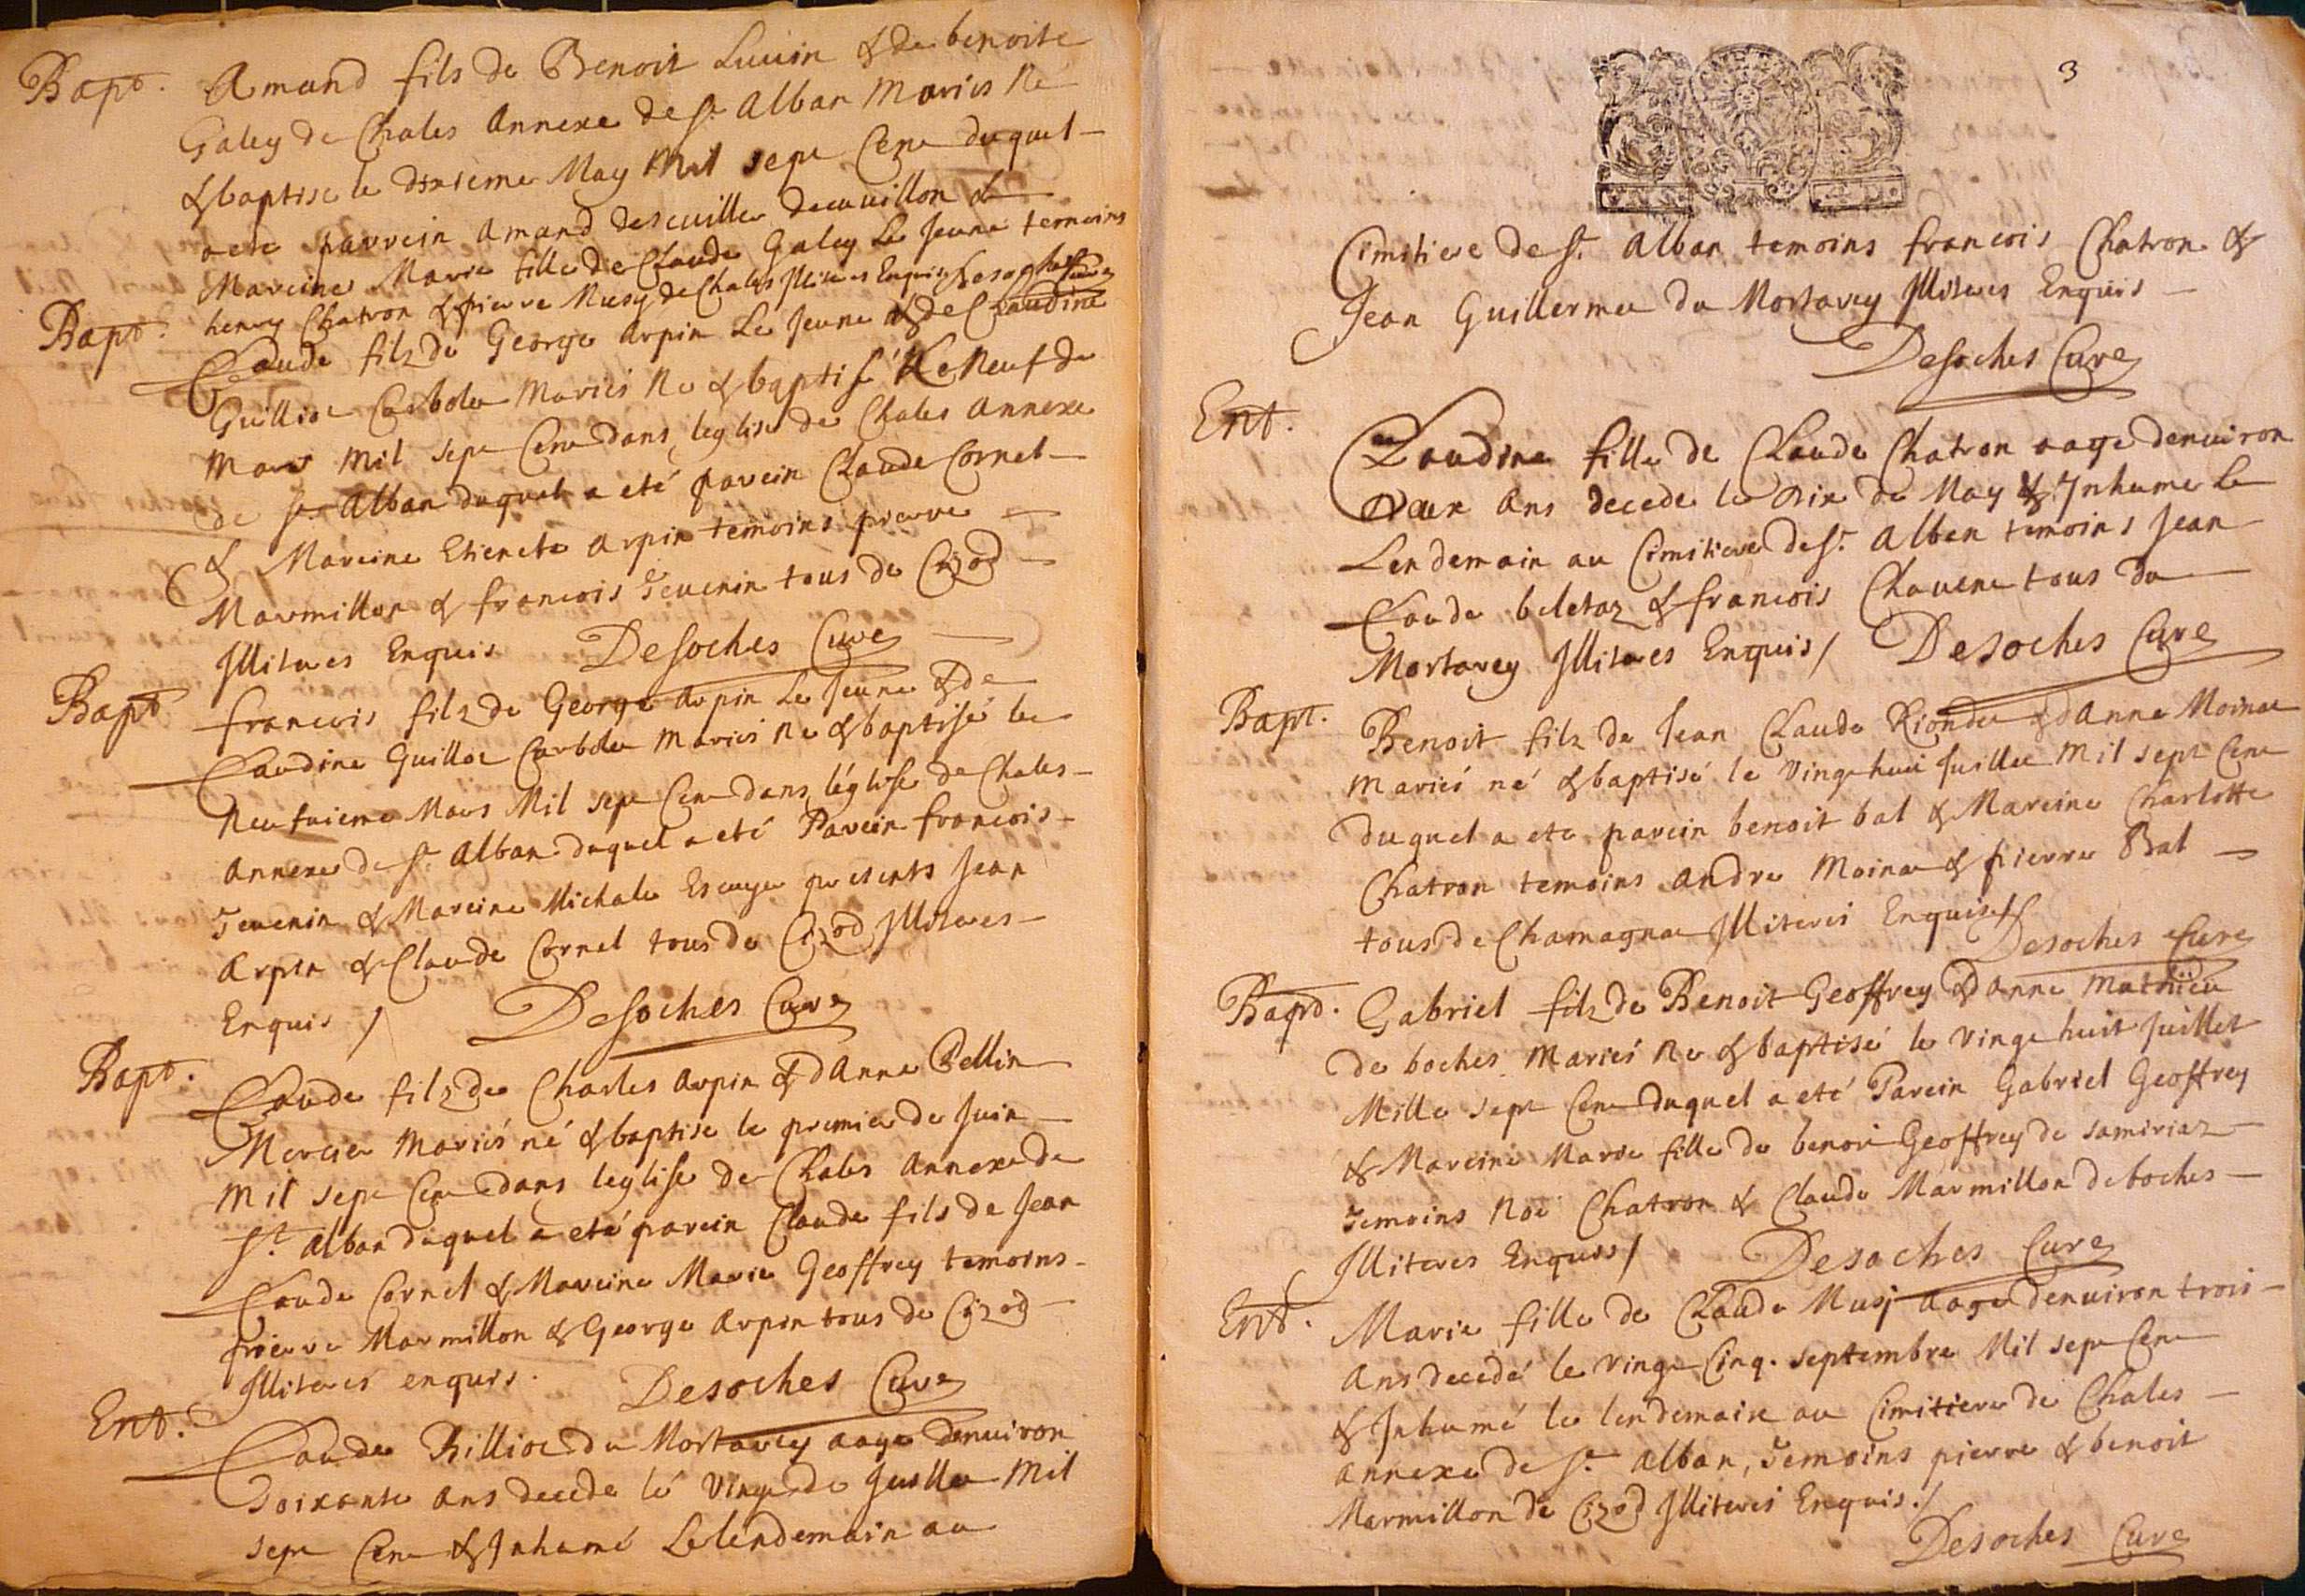 Bapt. Amand fils de Benoit Luuin & de benoite
Galey de Chales Annexe de st. Alban Mariés Né
& baptisé le dixieme May Mil sept Cent duquel
a ete parrein Amand descuilles &
Mareine Marie fille de Claude Galey Le Jeune temoins
henry Chatron & pierre Musy de Chales Illiteres Enquis Desoches Cure
Bapt. Claude filz de George Arpin Le Jeune & de Claudine
Guilliot Carbolu Mariés Ne & baptisé Le Neuf de
Mars Mil sept Cent dans leglise de Chales Annexe
de st. Alban duquel a eté parein Claude Cornet
& Mareine Etienete Arpin temoins pierre
Marmillon & francois Tevenin tous de Cizod
Illiteres Enquis Desoches Cure
Bapt francois filz de George Arpin Le Jeune & de
Claudine Guillot Carbolu Mariés Ne & baptisé le
Neufuieme Mars Mil sept Cent dans léglise de Chales
Annexe de st. Alban duquel a eté Parein francois
Tevenin & Mareine Michale presents Jean
Arpin & Claude Cornet tous de Cizod Illiteres
Enquis / Desoches Cure
Bapt. Claude filz de Charles Arpin & dAnne Bellin
Mercier Mariés né & baptise le premier de Juin
Mil sept Cent dans leglise de Chales Annexe de
st. Alban duquel a eté parein Claude fils de Jean
Claude Cornet & Mareine Marie Geoffrey temoins
pierre Marmillon & George Arpin tous de Cizod
Illiterés enquis. Desoches Cure
Ent. Claude Rilliot du Mortarey aage denuiron
Soixante ans decede le Vingt de Juillet Mil
sept Cent & Inhumé Le lendemain au
3
Cimitiere de st. Alban temoins francois Chatron &
Jean Guillermet du Mortarey Illiteres Enquis
Desoches Cure
Ent. Claudine fille de Claude Chatron aage denuiron
deux Ans decede le dix de May & Inhume Le
Lendemain au Cimitiere de st. Alban temoins Jean
Claude beletaz & francois Chavent tous du
Mortarey Illiteres Enquis / Desoches Cure
Bapt. Benoit filz de Jean Claude Riondet & dAnne Moinat
Mariés né & baptisé le Vingt huit Juillet Mil sept Cent
duquel a ete parein benoit bal & Mareine Charlotte
Chatron temoins Andre Moinat & pierre Bal
tous de Chamagnat Illiteres Enquis /
Desoches Cure
Bapt. Gabriel filz de Benoit Geoffrey & dAnne Mathieu
de boches Mariés Ne & baptisé le Vingt huit Juillet
Mille sept Cent duquel a eté Parein Gabriel Geoffrey
& Mareine Marie fille de benoit Geoffrey de samiriaz
Temoins Noë Chatron & Claude Marmillon de boches
Illiteres Enquis / Desoches Cure
Ent. Marie fille de Claude Musj aage denuiron trois
Ans decedé le Vingt Cinq. septembre Mil sept Cent
& Inhumé le lendemain au Cimitiere de Chales
Annexe de st. Alban, Temoins pierre & benoit
Marmillon de Cizod Illiteres Enquis. /
Desoches Cure